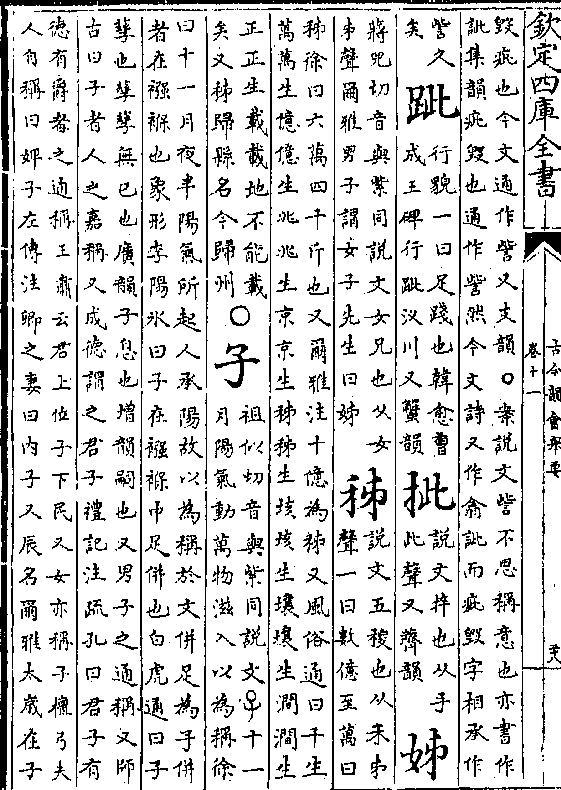 欽定四庫全書
古今韻會舉要
卷十一
毀疵也今文通作訾又支韻○案説文訾不思稱意也亦書作
訿集韻疵毀也通作訾然今文詩又作翕訿而疵毀字相承作
訾久
矣
跐
行貌一曰足踐也韓愈曹
成王碑行跐汊川又蟹韻
㧗
説文捽也从手
此聲又薺韻
姊
蔣兕切音與紫同説文女兄也从女
𠂔聲爾雅男子謂女子先生曰姊
秭
説文五稯也从禾𠂔
聲一曰數億至萬曰
秭徐曰六萬四千斤也又爾雅注十億為秭又風俗通曰千生
萬萬生億億生兆兆生京京生秭秭生垓垓生壤壤生澗澗生
正正生載載地不能載
矣又秭歸縣名今歸州
○子
祖似切音與紫同説文十一
月陽氣動萬物滋入以為稱徐
曰十一月夜半陽氣所起人承陽故以為稱於文併足為子併
者在襁褓也象形李陽冰曰子在襁褓中足併也白虎通曰子
孳也孳孳無已也廣韻子息也増韻嗣也又男子之通稱又師
古曰子者人之嘉稱又成德謂之君子禮記注疏孔曰君子有
德有爵者之通稱王肅云君上位子下民又女亦稱子檀弓夫
人自稱曰婢子左傳注卿之妻曰内子又辰名爾雅太歲在子